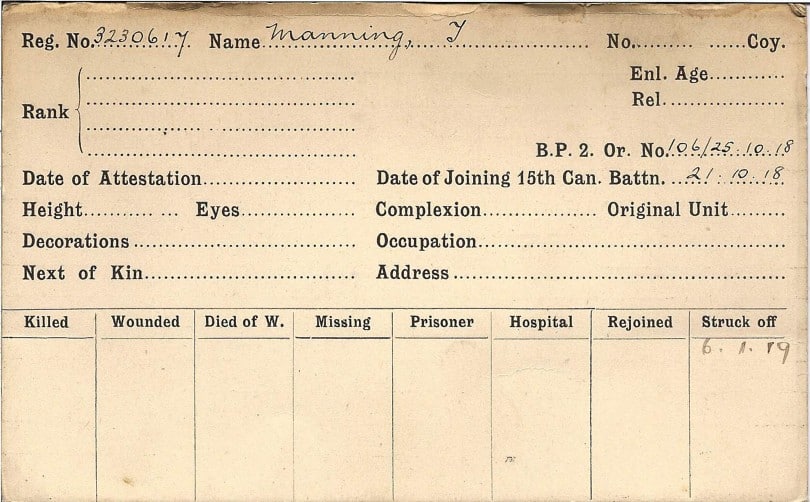 Reg. No. 3230617. Name Manning, J No. Coy.
Enl. Age
Rel.
Rank
B.P. 2. Or. No. 106/25.10.18
Date of Attestation Date of Joining 15th Can. Battn. 21.10.18
Height Eyes Complexion Original Unit
Decorations Occupation
Next of Kin Address
Killed Wounded Died of W. Missing Prisoner Hospital Rejoined Struck off
6.1.19